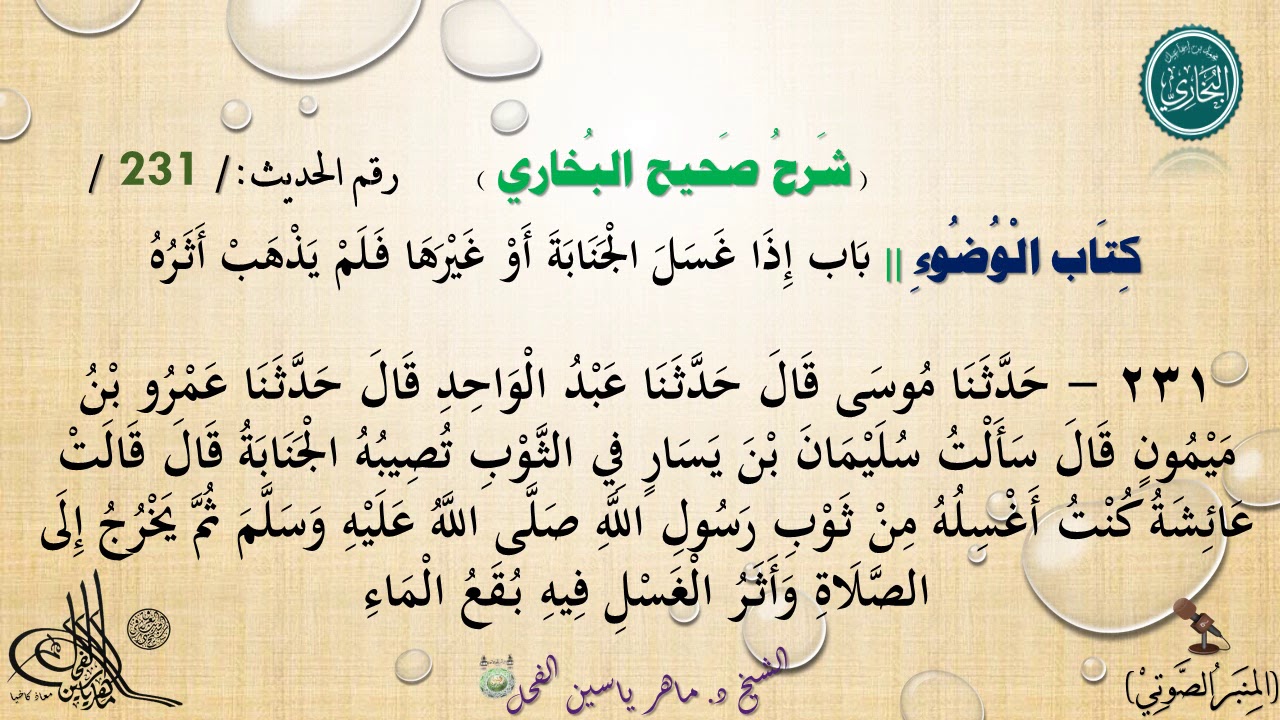 محمد بن إسماعيل
البُخَارِيّ
( شَرحُ صَحيح البُخاري ) رقم الحديث: / 231 /
كِتَاب الْوُضُوءِ || بَاب إِذَا غَسَلَ الْجَنَابَةَ أَوْ غَيْرَهَا فَلَمْ يَذْهَبْ أَثَرُهُ
٢٣١ – حَدَّثَنَا مُوسَى قَالَ حَدَّثَنَا عَبْدُ الْوَاحِدِ قَالَ حَدَّثَنَا عَمْرُو بْنُ
مَيْمُونٍ قَالَ سَأَلْتُ سُلَيْمَانَ بْنَ يَسَارٍ فِي الثَّوْبِ تُصِيبُهُ الْجَنَابَةُ قَالَ قَالَتْ
عَائِشَةُ كُنْتُ أَغْسِلُهُ مِنْ ثَوْبِ رَسُولِ اللَّهِ صَلَّى اللَّهُ عَلَيْهِ وَسَلَّمَ ثُمَّ يَخْرُجُ إِلَى
الصَّلَاةِ وَأَثَرُ الْغَسْلِ فِيهِ بُقَعُ الْمَاءِ
الشيخ د. ماهر ياسين الفحل
(المِنبَر الصَّوتِيْ)